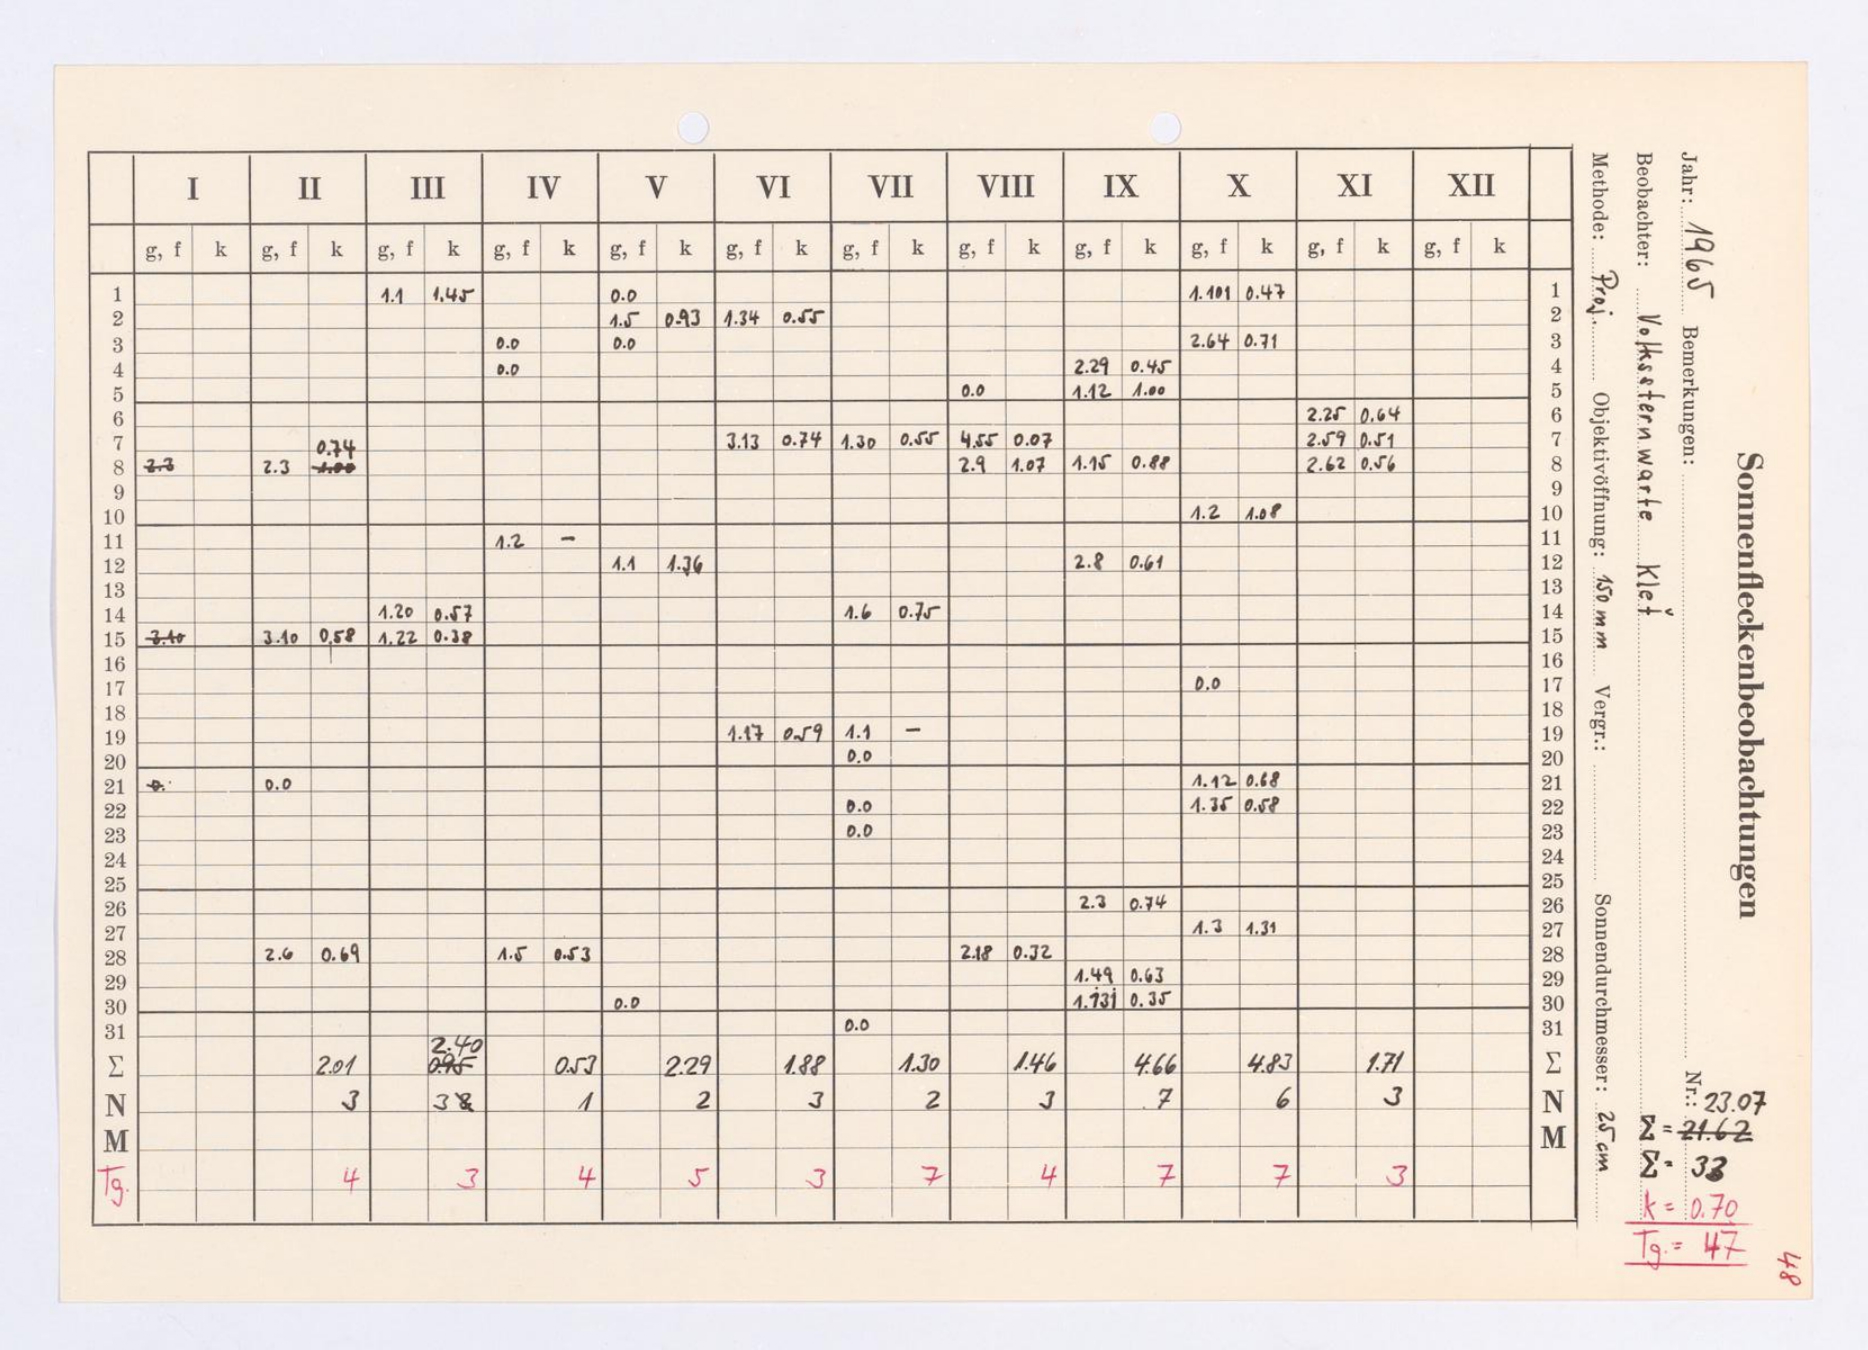 Sonnenfleckenbeobachtungen
Jahr: 1965 Bemerkungen: Nr.:
Beobachter: Volkssternwarte Kleť
Methode: Proj. Objektivöffnung: 150 mm Vergr.: Sonnendurchmesser: 25 cm
I II III IV V VI VII VIII IX X XI XII
g, f k g, f k g, f k g, f k g, f k g, f k g, f k g, f k g, f k g, f k g, f k g, f k
1 1.1 1.45 0.0 1.101 0.47 1
2 1.5 0.93 1.34 0.55 2
3 0.0 0.0 2.64 0.71 3
4 0.0 2.29 0.45 4
5 0.0 1.12 1.00 5
6 2.25 0.64 6
0.74
7 3.13 0.74 1.30 0.55 4.55 0.07 2.59 0.51 7
8 2.3 2.3 1.00 2.9 1.07 1.15 0.88 2.62 0.56 8
9 9
10 1.2 1.08 10
11 1.2 – 11
12 1.1 1.36 2.8 0.61 12
13 13
14 1.20 0.57 1.6 0.75 14
15 3.10 3.10 0.58 1.22 0.38 15
16 16
17 0.0 17
18 18
19 1.17 0.59 1.1 – 19
20 0.0 20
21 0. 0.0 1.12 0.68 21
22 0.0 1.35 0.58 22
23 0.0 23
24 24
25 25
26 2.3 0.74 26
27 1.3 1.31 27
28 2.6 0.69 1.5 0.53 2.18 0.32 28
29 1.49 0.63 29
30 0.0 1.131 0.35 30
31 0.0 31
2.40
Σ 2.01 0.95 0.53 2.29 1.88 1.30 1.46 4.66 4.83 1.71 Σ
N 3 3 1 2 3 2 3 7 6 3 N
M M
Tg. 4 3 4 5 3 7 4 7 7 3
23.07
Σ = 21.62
Σ = 33
k = 0.70
Tg. = 47
48